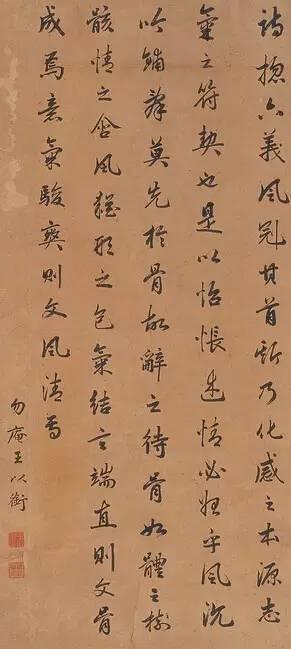 詩揔六義風冠其首斯乃化感之本源志
氣之符契也是以怊悵述情必始乎風沉
吟鋪辭莫先於骨故辭之待骨如體之樹
骸情之含風猶形之包氣結言端直則文骨
成焉意氣駿爽則文風清焉
勿庵王以銜